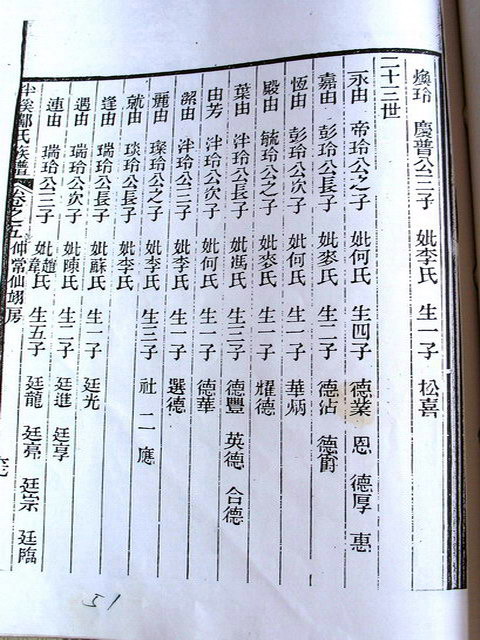 煥玲 慶普公三子 妣李氏 生一子 松喜
二十三世
永由 帝玲公之子 妣何氏 生四子 德業 恩 德厚 惠
嘉由 彭玲公長子 妣麥氏 生二子 德沾 德爵
恆由 彭玲公次子 妣何氏 生一子 華炳
殿由 毓玲公之子 妣麥氏 生一子 耀德
葉由 泮玲公長子 妣馮氏 生三子 德豐 英德 合德
由芳 泮玲公次子 妣何氏 生一子 德華
潔由 泮玲公三子 妣李氏 生一子 選德
麗由 璨玲公之子 妣李氏 生三子 社 二 應
就由 琰玲公長子 妣李氏
逢由 瑞玲公長子 妣蘇氏 生一子 廷光
遇由 瑞玲公次子 妣陳氏 生二子 廷進 廷享
連由 瑞玲公三子 妣趙氏 妣韋氏 生五子 廷龍 廷亮 廷宗 廷臨
鄺氏族譜 卷之五 仲常仙翊房
51